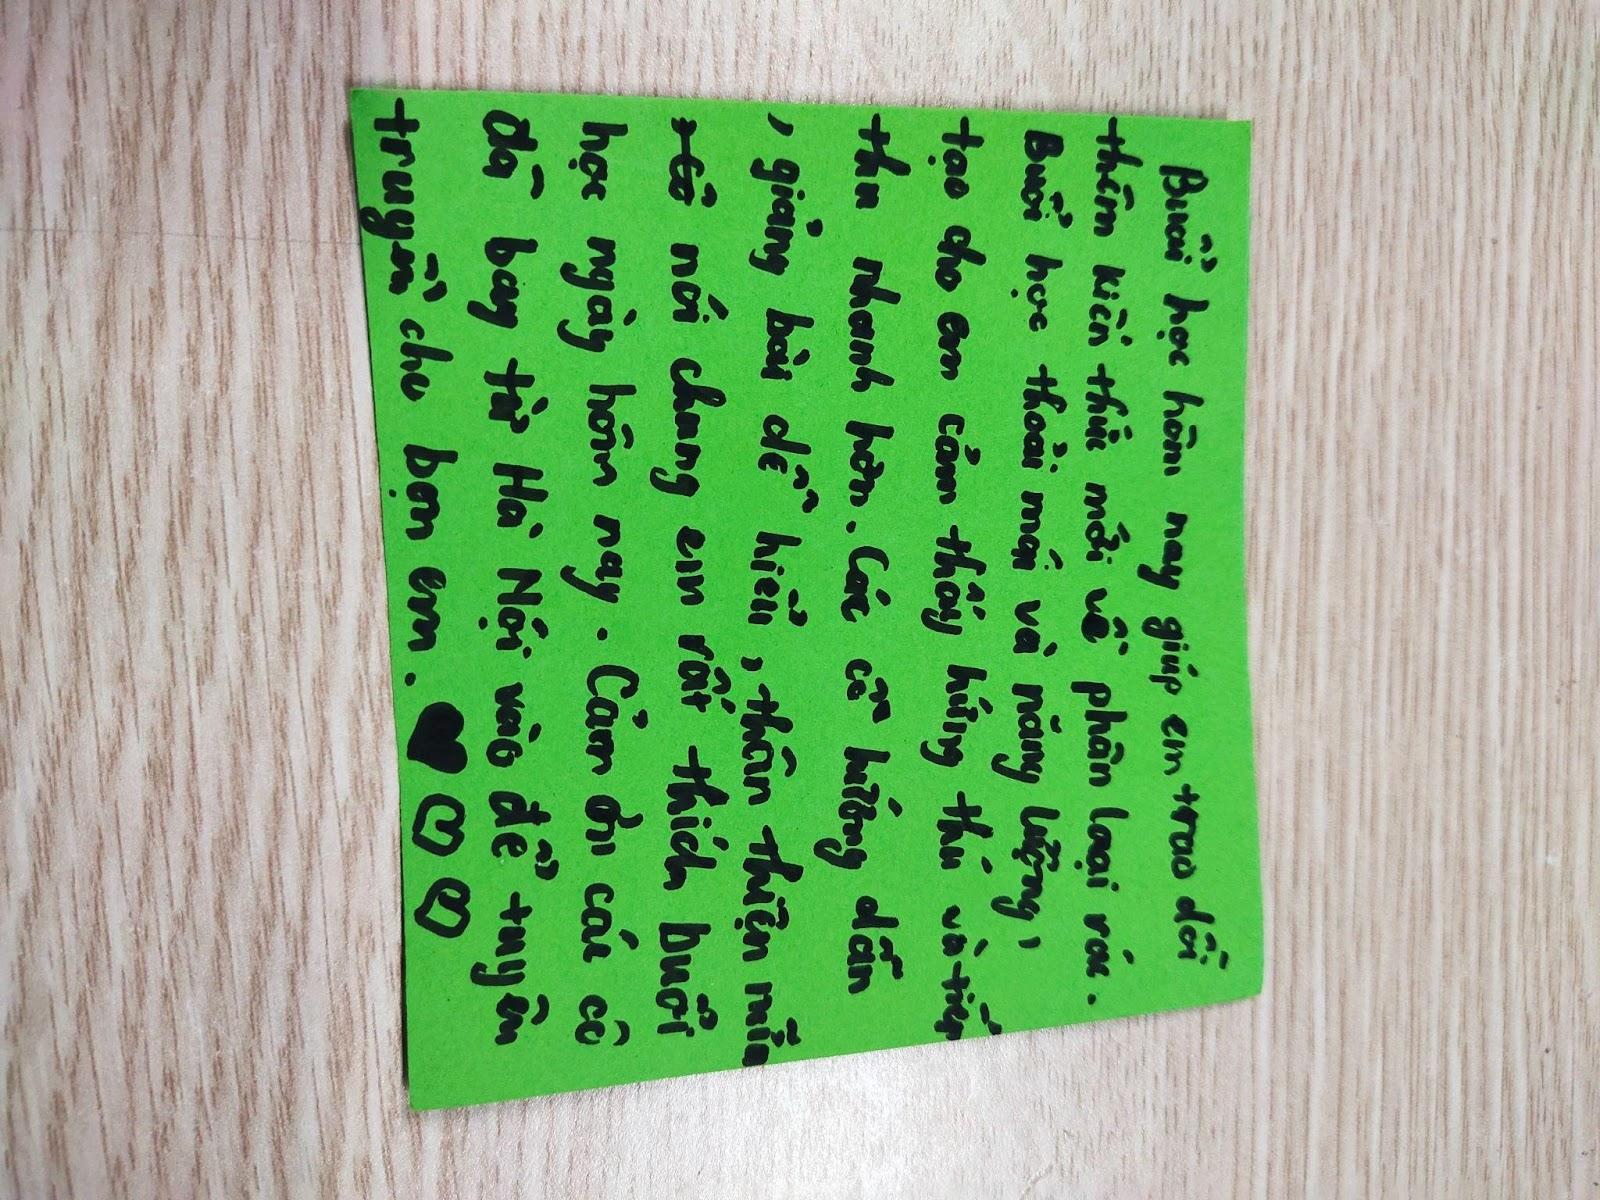 Buổi học hôm nay giúp em trao đổi
thêm kiến thức mới về phân loại rác.
Buổi học thoải mái và năng lượng,
tạo cho em cảm thấy hứng thú và tiếp
thu nhanh hơn. Các cô hướng dẫn
, giảng bài dễ hiểu, thân thiện nữa
nói chung em rất thích buổi
học ngày hôm nay. Cảm ơn các cô
đã bay từ Hà Nội vào để tuyên
truyền cho bọn em.